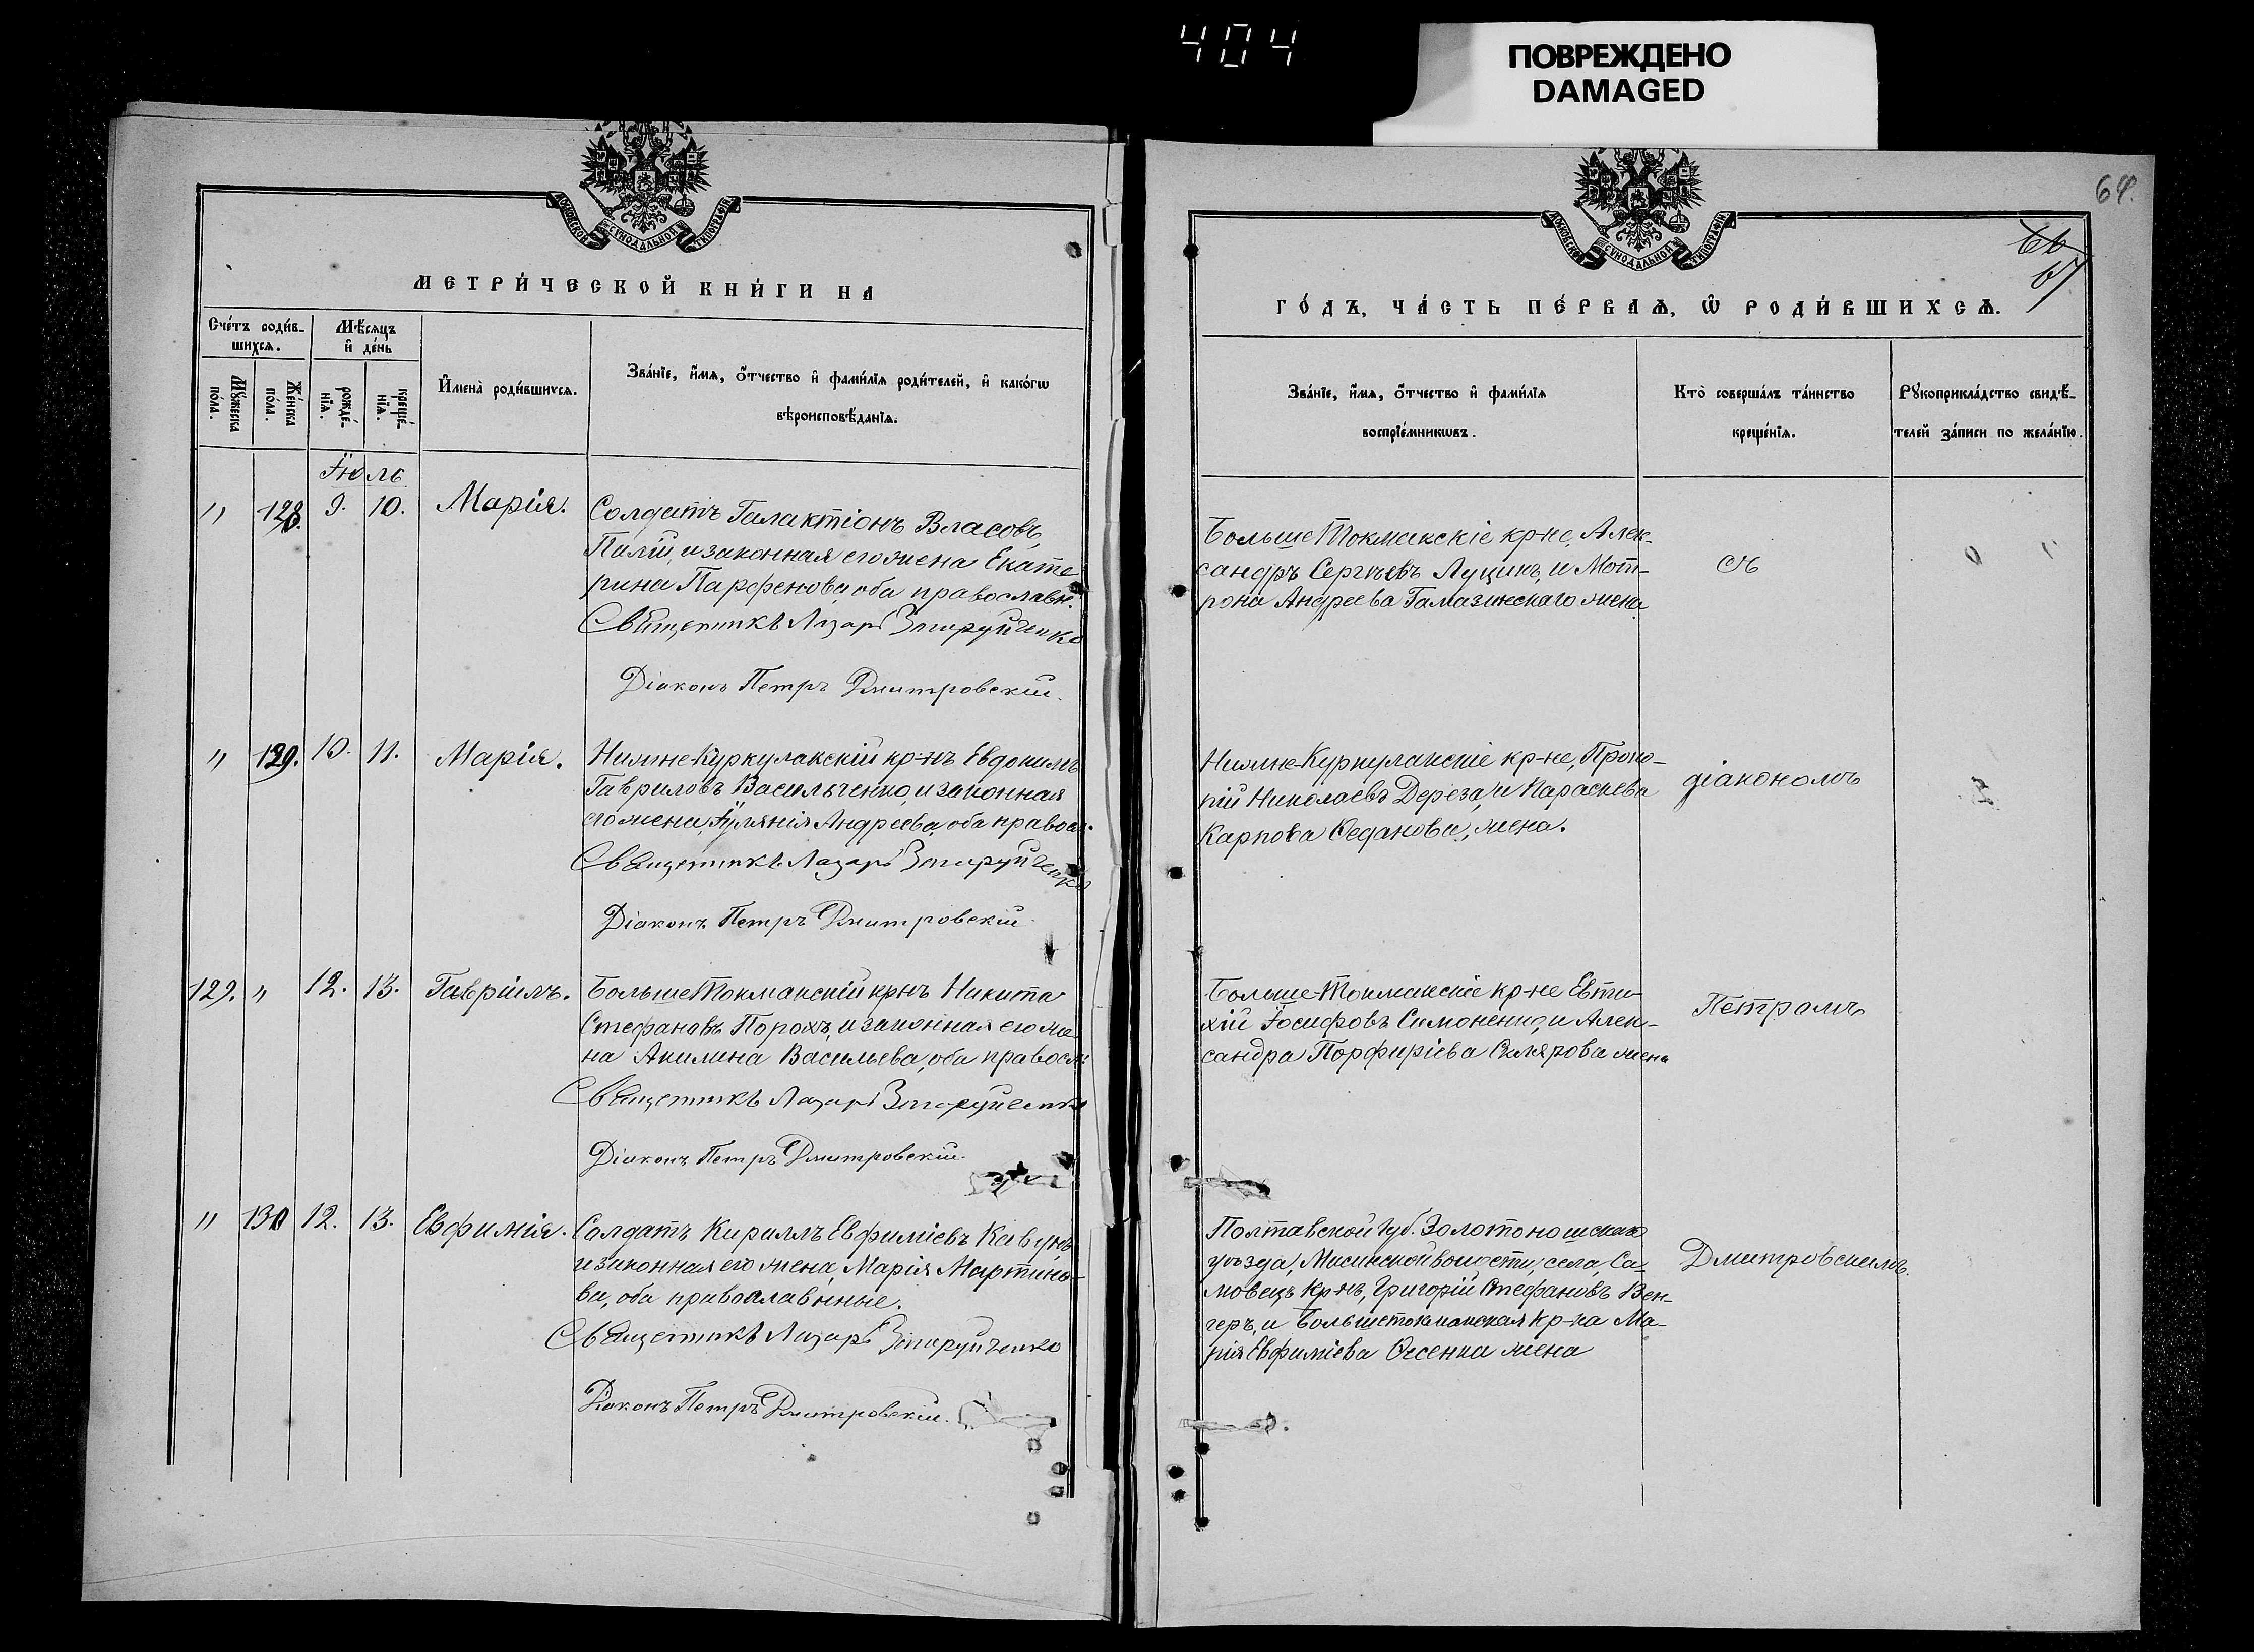 404
ПОВРЕЖДЕНО
DAMAGED
МОСКОВСКОЙ СѴНОДАЛЬНОЙ ТИПОГРАФІИ
МЕТРИ́ЧЕСКОЙ КНИ́ГИ НА
Сче́тъ роди́в-
шихсѧ.
Мѣ́сѧцъ
и҆ де́нь
И҆мена̀ роди́вшихсѧ.
Зва́нїе, и҆́мѧ, ѻ҆́тчество и҆ фами́лїѧ роди́телей, и҆ како́гѡ
вѣроисповѣ́данїѧ.
Мꙋ́жеска
по́ла.
Же́нска
по́ла.
рожде́-
нїѧ.
креще́-
нїѧ.
Іюль
" 128. 9. 10. Марія. Солдатъ Галактіонъ Власовъ
Палій, и законная его жена Екате
рина Парфенова, оба православн.
Священникъ Лазарь
Діаконъ Петръ Дмитровскій.
" 129. 10. 11. Марія. Нижне-Куркулакскій кр-нъ Евдокимъ
Гавриловъ Васильченко, и законная
его жена, Іулянія Андреева, оба правосл.
Священникъ Лазарь
Діаконъ Петръ Дмитровскій
129. " 12. 13. Гавріилъ. БольшеТокмакскій крнъ Никита
Стефановъ Порохъ, и законная его же
на Акилина Васильева, оба правосл:
Священникъ Лазарь
Діаконъ Петръ Дмитровскій.
" 130 12. 13. Евфимія. Солдатъ Кириллъ Евфиміевъ Кавунъ
и законная его жена, Марія Мартино-
ва, оба православнные.
Священникъ Лазарь
Діаконъ Петръ Дмитровскій.
64.
67
МОСКОВСКОЙ СѴНОДАЛЬНОЙ ТИПОГРАФІИ
ГО́ДЪ, ЧА́СТЬ ПЕ́РВАѦ, Ѡ҆ РОДИ́ВШИХСѦ.
Зва́нїе, и҆́мѧ, ѻ҆́тчество и҆ фами́лїѧ
воспрїе́мникѡвъ.
Кто̀ соверша́лъ та́инство
креще́нїѧ.
Рꙋкоприкла́дство свидѣ́-
телей за́писи по жела́нїю.
БольшеТокмакскіе кр-не, Алек-
сандръ Сергѣевъ Луцикъ, и Мот-
рона Андреева Гамазинскаго жена
Съ
Нижне-Куркулакскіе кр-не, Проко-
пій Николаевъ Дереза, и Параскева
Карпова Феданова, жена.
діакономъ
Больше-Токмакскіе кр-не Евти-
хій Іосифовъ Симоненко, и Алек-
сандра Порфиріева Склярова жена
Петромъ
Полтавской губ. Золотоношскаго
уѣзда, волости, села,
кр-нъ, Григорій Стефановъ Вен-
геръ, и Большетокмакская кр-ка Ма-
рія Евфиміева жена
Дмитровскимъ.